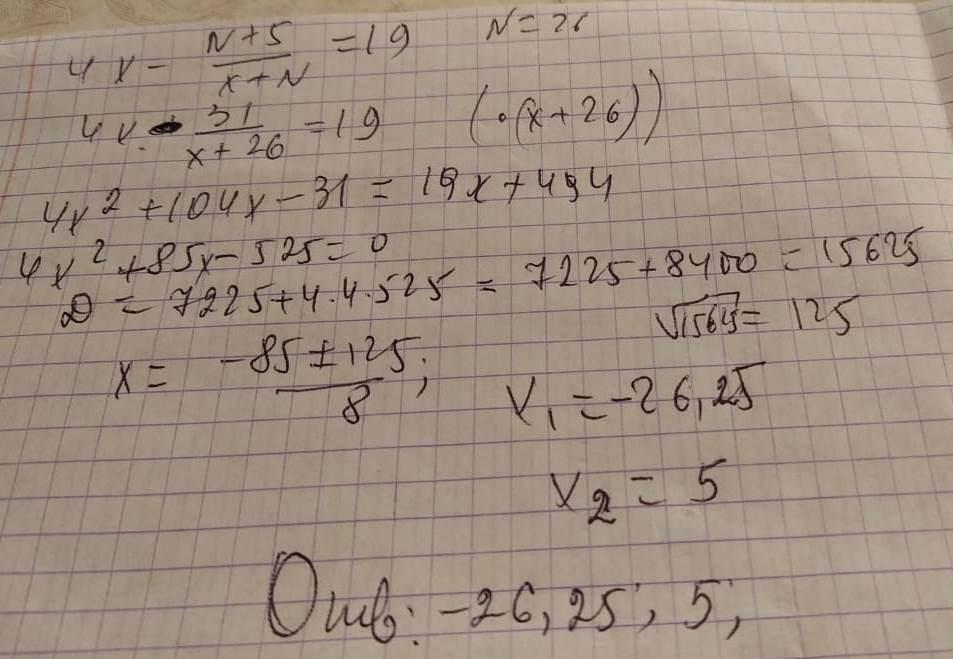 4x - \frac{N+5}{x+N} = 19   N = 26
4x - \frac{31}{x+26} = 19   (·(x+26))
4x² + 104x - 31 = 19x + 494
4x² + 85x - 525 = 0
D = 7225 + 4·4·525 = 7225 + 8400 = 15625
√15625 = 125
x = \frac{-85 ± 125}{8};
x₁ = -26,25
x₂ = 5
Отв: -26,25; 5;